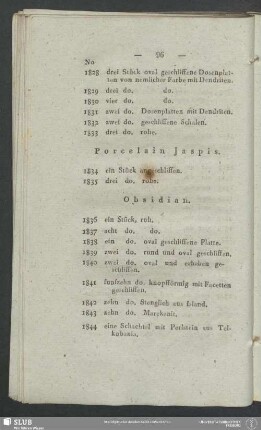 — 96 —
No
1828 drei Stück oval geschliffene Dosenplat-
ten von nemlicher Farbe mit Dendriten.
1829 drei do. do.
1830 vier do. do.
1831 zwei do. Dosenplatten mit Dendriten.
1832 zwei do. geschliffene Schalen.
1833 drei do. rohe.
Porcelain Jaspis.
1834 ein Stück angeschliffen.
1835 drei do. rohe.
Obsidian.
1836 ein Stück, roh.
1837 acht do. do.
1838 ein do. oval geschliffene Platte.
1839 zwei do. rund und oval geschliffen.
1840 zwei do. oval und erhaben ge-
schliffen.
1841 funfzehn do. knopfförmig mit Facetten
geschliffen.
1842 zehn do. Stenglich aus Island.
1843 zehn do. Marekanit.
1844 eine Schachtel mit Perlstein aus Tel-
kobania.
SLUB